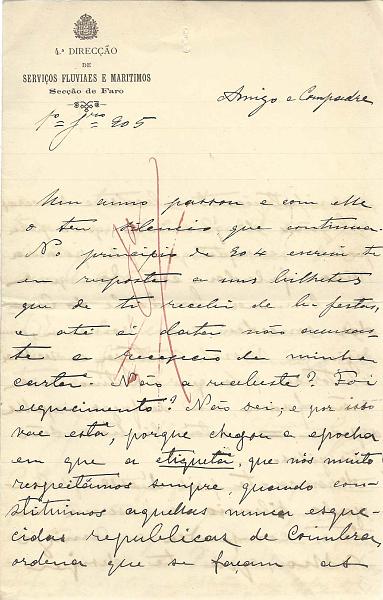 4.ª DIRECÇÃO
DE
SERVIÇOS FLUVIAES E MARITIMOS
Secção de Faro
Amigo e Compadre
1º Jrº 905
Um anno passou e com elle
o teu silencio, que continua.
No principio de 904 escrevi-te
em resposta a uns bilhetes
que de ti recebi de b. festas,
e até á data não accusas-
te a recepção de minha
carta. Não a recebeste? Foi
esquecimento? Não sei; e por isso
vae esta, porque chegou a epocha
em que a etiqueta, que nós muito
respeitámos sempre, quando con-
stituimos aquellas nunca esque-
cidas republicas de Coimbra,
ordena que se façam as